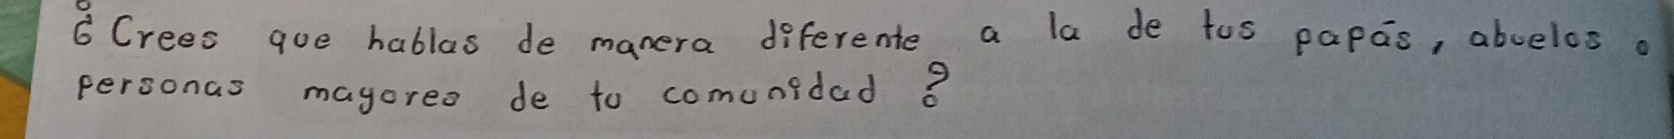 ¿Crees que hablas de manera diferente a la de tus papás, abuelos o
personas mayores de tu comunidad?